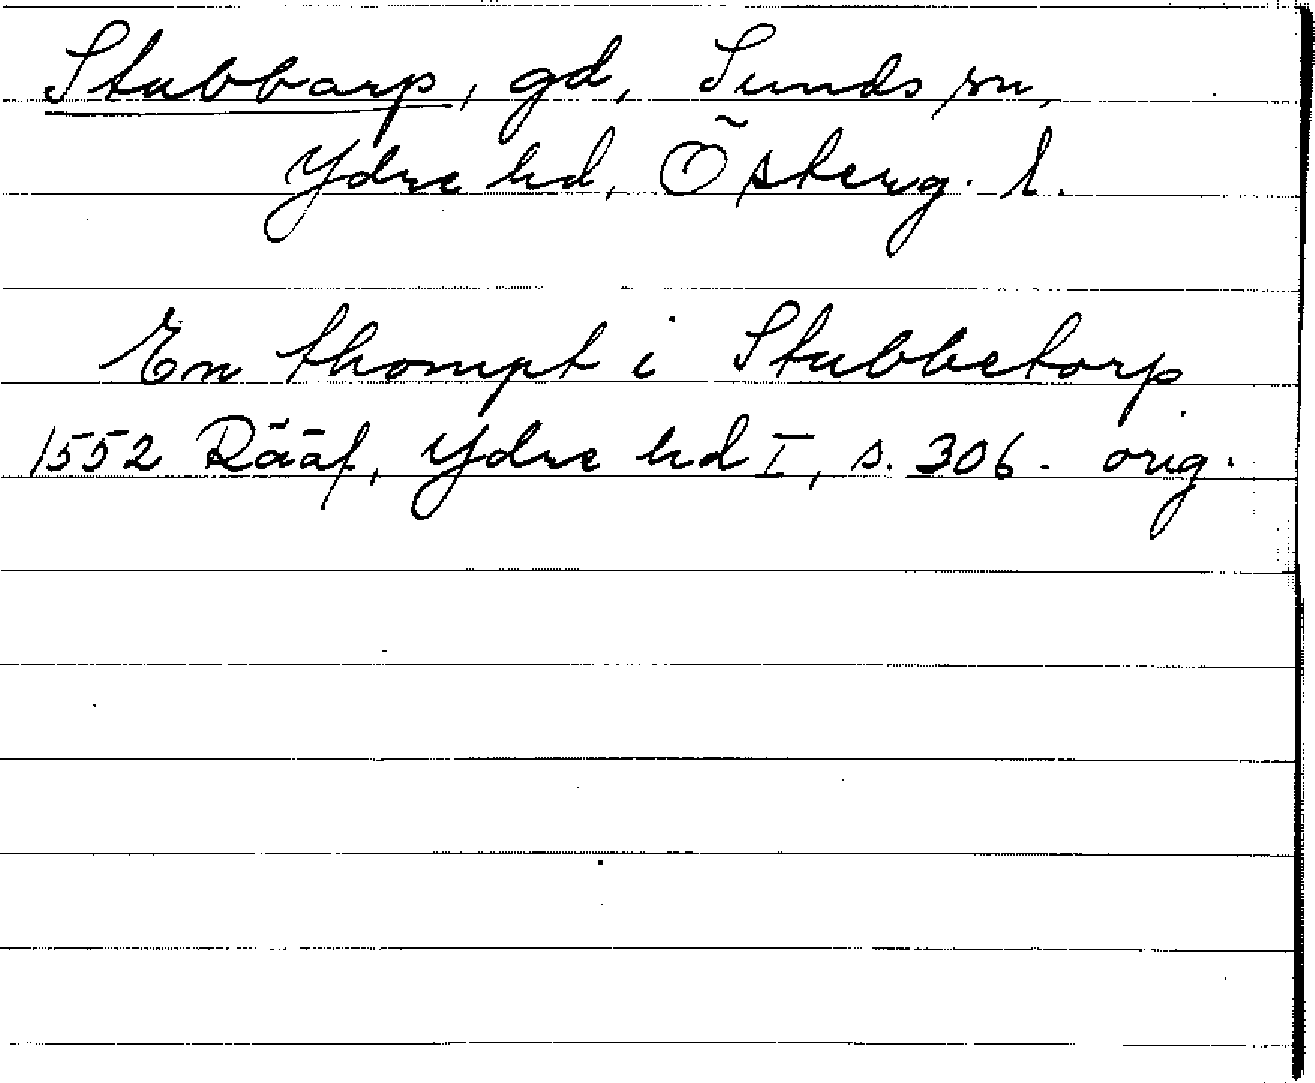 Stubbarp, gd, Sunds sn,
Ydre hd, Österg. l.
En thompt i Stubbetorp
1552 Rääf, Ydre hd I, s. 306. orig.